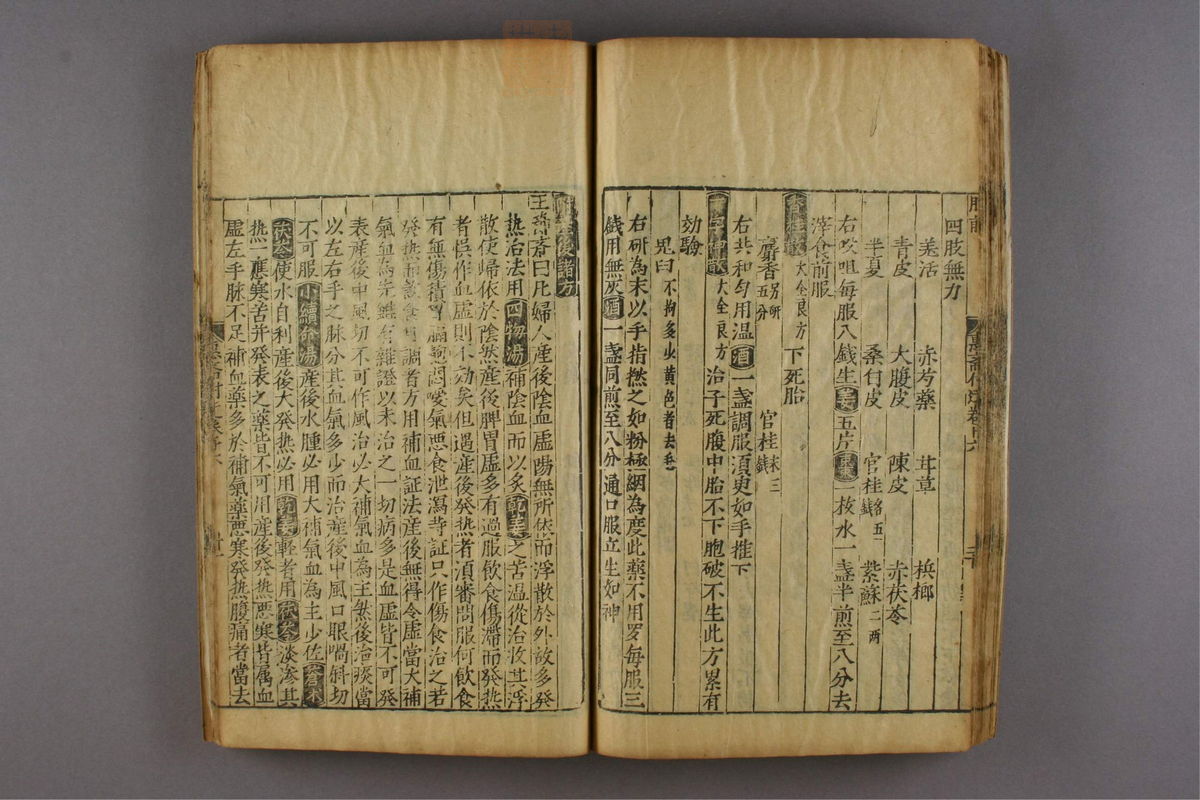 四肢無力
羌活　赤芍藥　茸草　梹榔
青皮　大腹皮　陳皮　赤茯苓
半夏　桑白皮　官桂各五錢　紫蘇二兩
右㕮咀每服八錢生姜五片一枚水一盞半煎至八分去
滓食前服
香桂散大全良方　下死胎
麝香五分另研　官桂末三錢
右共和匀用温酒一盞調服須臾如手推下
大全良方　治子死腹中胎不下胞破不生此方累有
効騐
皂曰不拘多少黄色者去
右研為末以手指撚之如粉極細為度此藥不用罗每服三
錢用無灰酒一盞同煎至八分通口服立生如神
產後諸方
王斎曰凡婦人産後陰血虛陽無所依而浮散於外故多發
熱治法用四物湯補陰血而以炙乾姜之苦温從治收其浮
散使歸依於陰然産後脾胃虛多有過服飲食傷滯而發熱
者悞作血虛則不効矣但遇産後發熱者須審問服何飲食
有無傷積胸膈飽悶噯氣悪食泄瀉等証只作傷食治之若
發熱而飲食調者方用補血証法産後無得令虛當大補
氣血為先雖有雜證以末治之一切病多是血虛皆不可發
表産後中風切不可作風治必大補氣血為主然後治痰當
以左右手之脉分其血氣多少而治産後中風口眼喎斜切
不可服小續命湯産後水腫必用大補氣血為主少佐蒼朮
茯苓使水自利産後大發熱必用乾姜輕者用茯苓淡滲其
热一應寒苦并發表之藥皆不可用産後發熱悪寒皆属血
虛左手脉不足補血藥多於補氣藥悪寒發热腹痛者當去